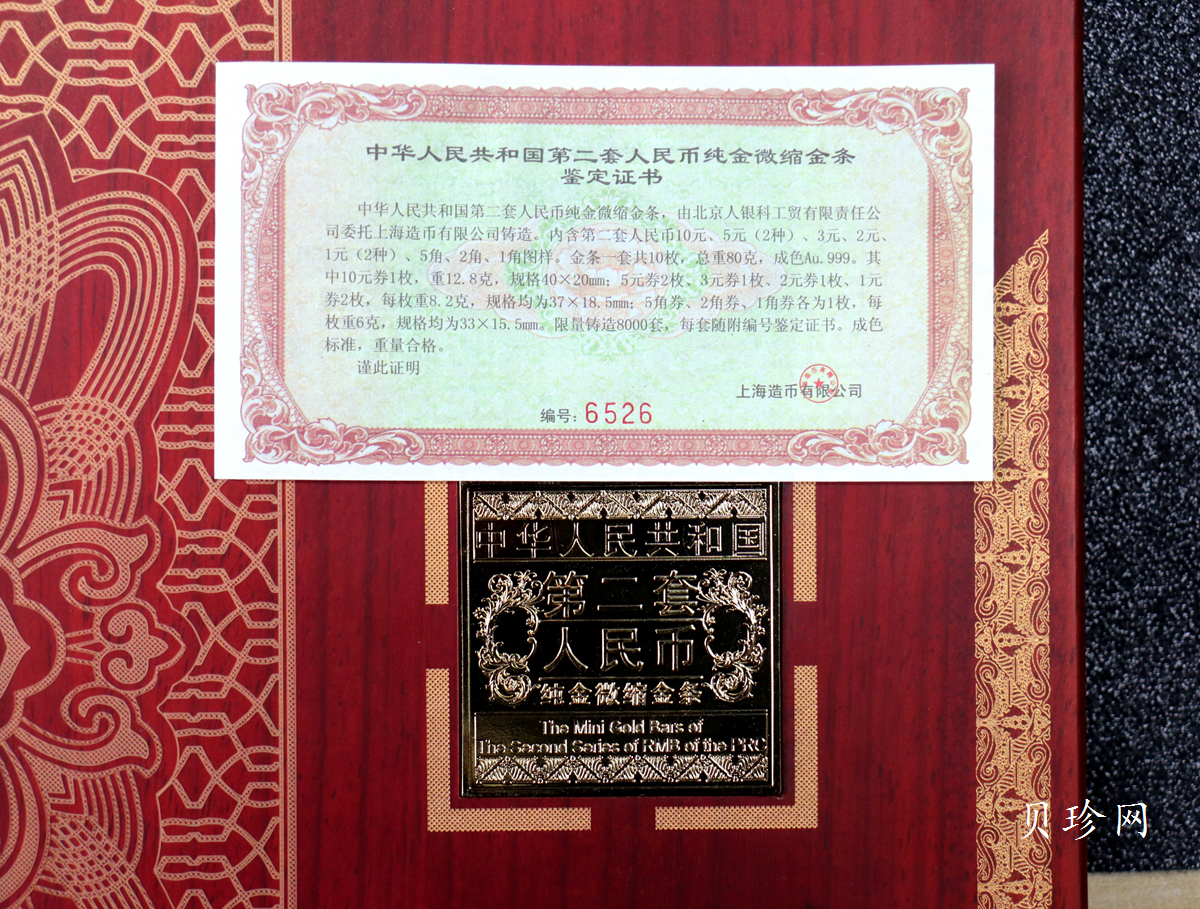 中华人民共和国第二套人民币纯金微缩金条
鉴定证书
中华人民共和国第二套人民币纯金微缩金条，由北京人银科工贸有限责任公
司委托上海造币有限公司铸造。内含第二套人民币10元、5元（2种）、3元、2元、
1元（2种）、5角、2角、1角图样。金条一套共10枚，总重80克，成色Au.999。其
中10元券1枚，重12.8克，规格40×20mm；5元券2枚、3元券1枚、2元券1枚、1元
券2枚，每枚重8.2克，规格均为37×18.5mm；5角券、2角券、1角券各为1枚，每
枚重6克，规格均为33×15.5mm。限量铸造8000套，每套随附编号鉴定证书。成色
标准，重量合格。
谨此证明
上海造币有限公司
编号：6526
中华人民共和国
第二套
人民币
纯金微缩金条
The Mini Gold Bars of
The Second Series of RMB of the PRC
贝珍网